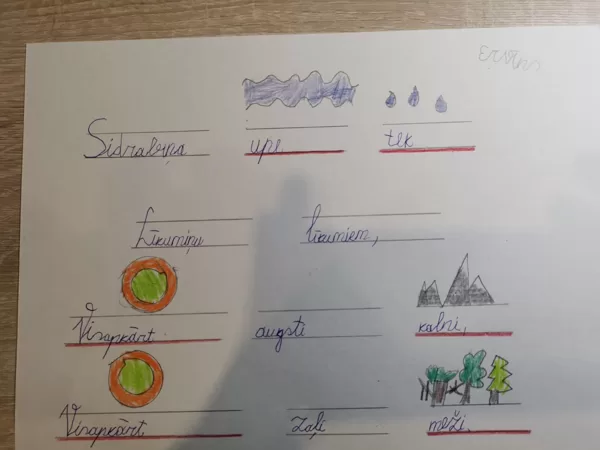 Ervīns
Sidrabiņa upe tek
Līkumiņu līkumiem,
Visapkārt augsti kalni,
Visapkārt zaļi meži.